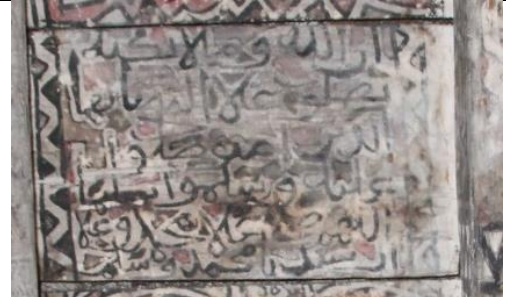 ان الله وملائكته
يصلون علا النبي يا أيها
الذين امنو صلوا
عليه وسلموا تسليما
اللهم صل علا محمد وعلا
ال سيدنا محمد وسلم